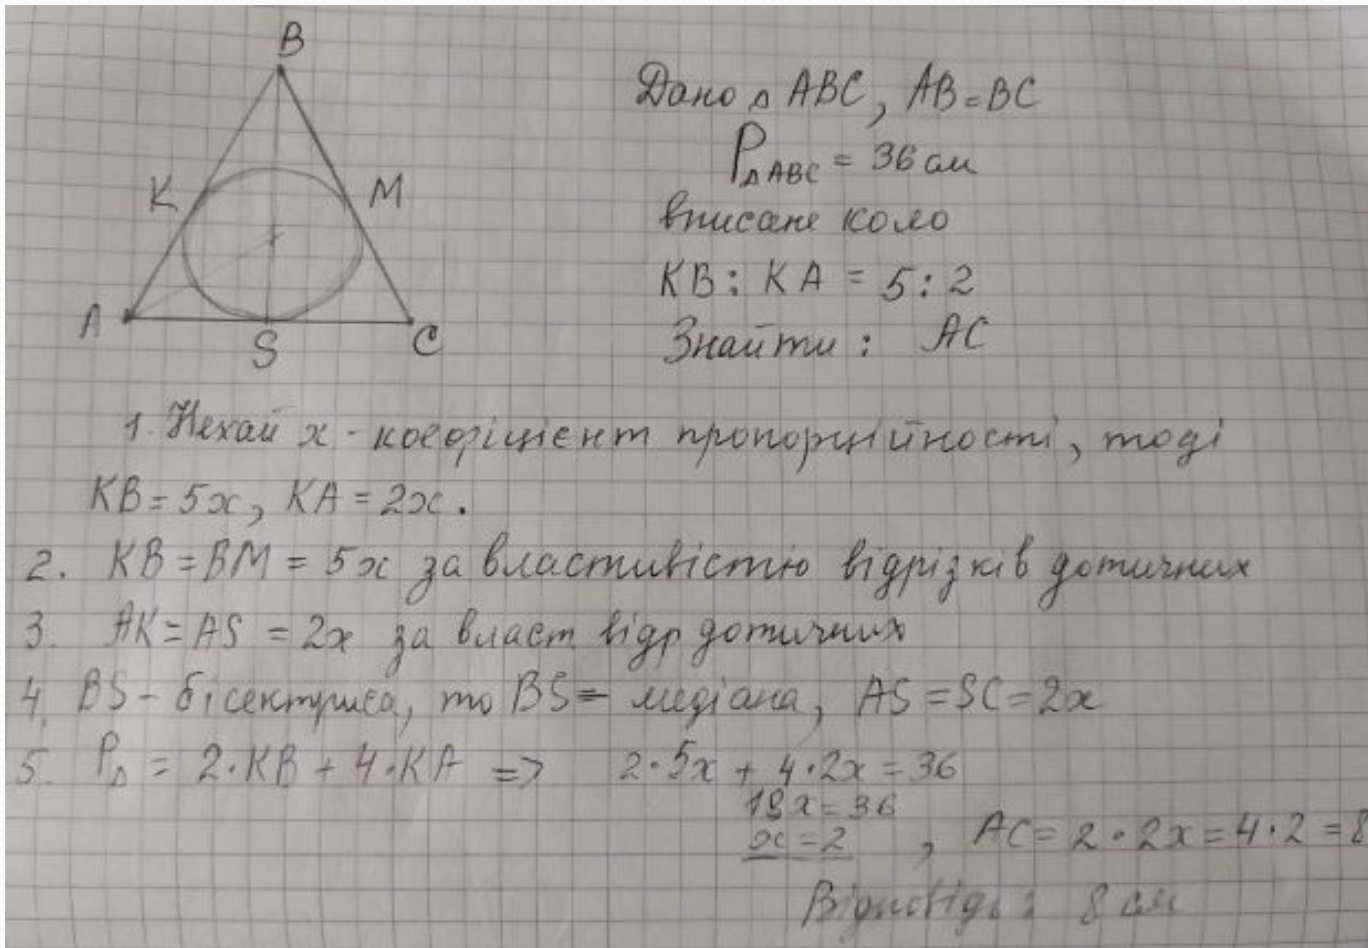 B
K
M
A
S
C
Дано Δ ABC, AB=BC
P Δ ABC = 36 см
вписане коло
KB : KA = 5 : 2
Знайти : AC
1. Нехай x - коефіцієнт пропорційності, тоді
KB = 5x, KA = 2x.
2. KB = BM = 5x за властивістю відрізків дотичних
3. AK = AS = 2x за власт відр дотичних
4. BS - бісектриса, то BS - медіана, AS = SC = 2x
5. P Δ = 2·KB + 4·KA => 2·5x + 4·2x = 36
18x = 36
x = 2 , AC = 2·2x = 4·2 = 8
Відповідь : 8 см